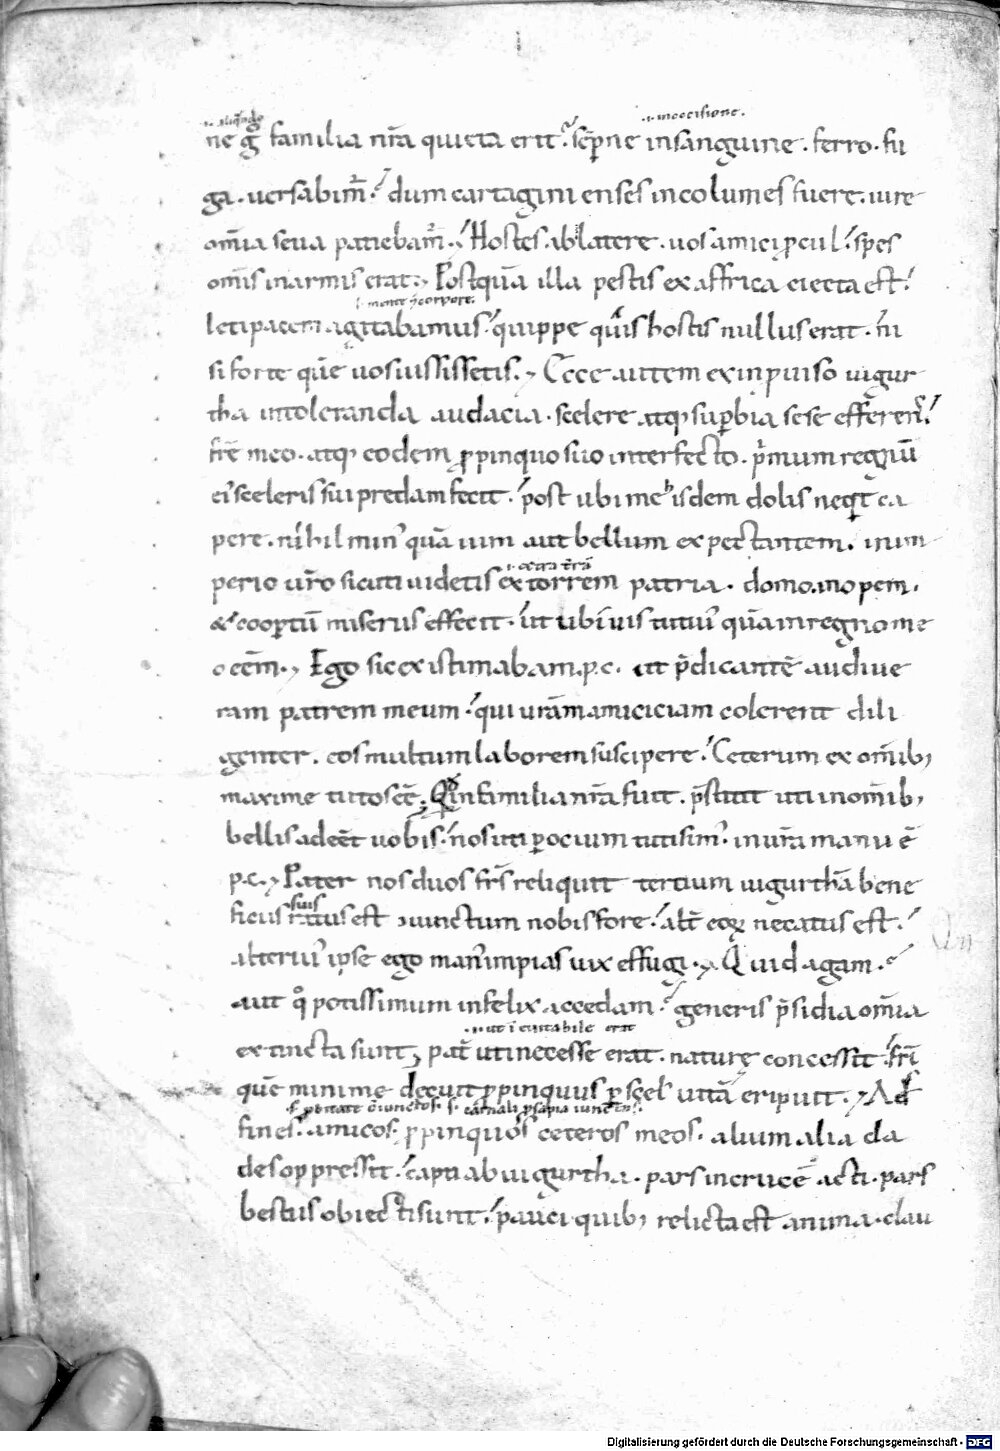 i. aliqndo
.i. in occisione.
ne gͦ familia nr̄a quieta erit? sēp ne insanguine. ferro. fu
ga. uersabim̄? dum cartaginienses incolumes fuere. iure
om̄ia seua patiebam̄. Hostes. ab latere. uos amici p̄cul. spes
om̄is inarmis erat. Postquā illa pestis ex affrica eiecta est.
s. mente & corpore.
leti pacem agitabamus. quippe quis hostis nullus erat. n̄
si forte quē uos iussissetis. Ecce autem exinprouiso iugur
tha intoleranda audacia. scelere atq; supbia sese efferens.
frē meo. atq; eodem ppinquo suo interfecto. pmum regnū
ei' sceleris sui predam fecit. post ubi me hisdem dolis neqt ca
pere. nihil min' quā uim aut bellum expectantem. inim
i. extra trā
perio ur̄o sicuti uidetis extorrem patria. domo. inopem.
& coopertū miseriis effecit. ut ubiuis tutiu' quāinregno me
o eēm. Ego sic existimabam. p.c. ut pdicantē audiue
ram patrem meum. qui urāmamiciciam colerent dili
genter. eos multum laborem suscipere. Ceterum ex om̄ib;
maxime tutos eē. Qd in familia nr̄a fuit. pstitit uti inom̄ib;
bellis adeēt uobis. nos uti p ocium tuti sim'. in ura manu ē
p.c. Pater nos duos frs reliquit tertium iugurthā bene
suis
ficiis ratus est ↄiunctum nobis fore. alt̄ eoꝝ necatus est.
alteriu' ipse ego man' impias uix effugi. Quid agam.
aut qͦ potissimum infelix accedam? generis psidia om̄ia
.i. ut ineuitabile erat
extincta sunt, pat̄ uti necesse erat. naturę concessit. fri
quē minime decuit ppinquus p scel' uitā eripuit. Ad
s. pbitate ↄiunctos. s. carnali psapia iunctos.
fines. amicos. ppinquos ceteros meos. alium alia cla
des oppressit. capti ab iugurtha. pars in crucē acti. pars
bestiis obiecti sunt. pauci quib; relicta est anima. clau